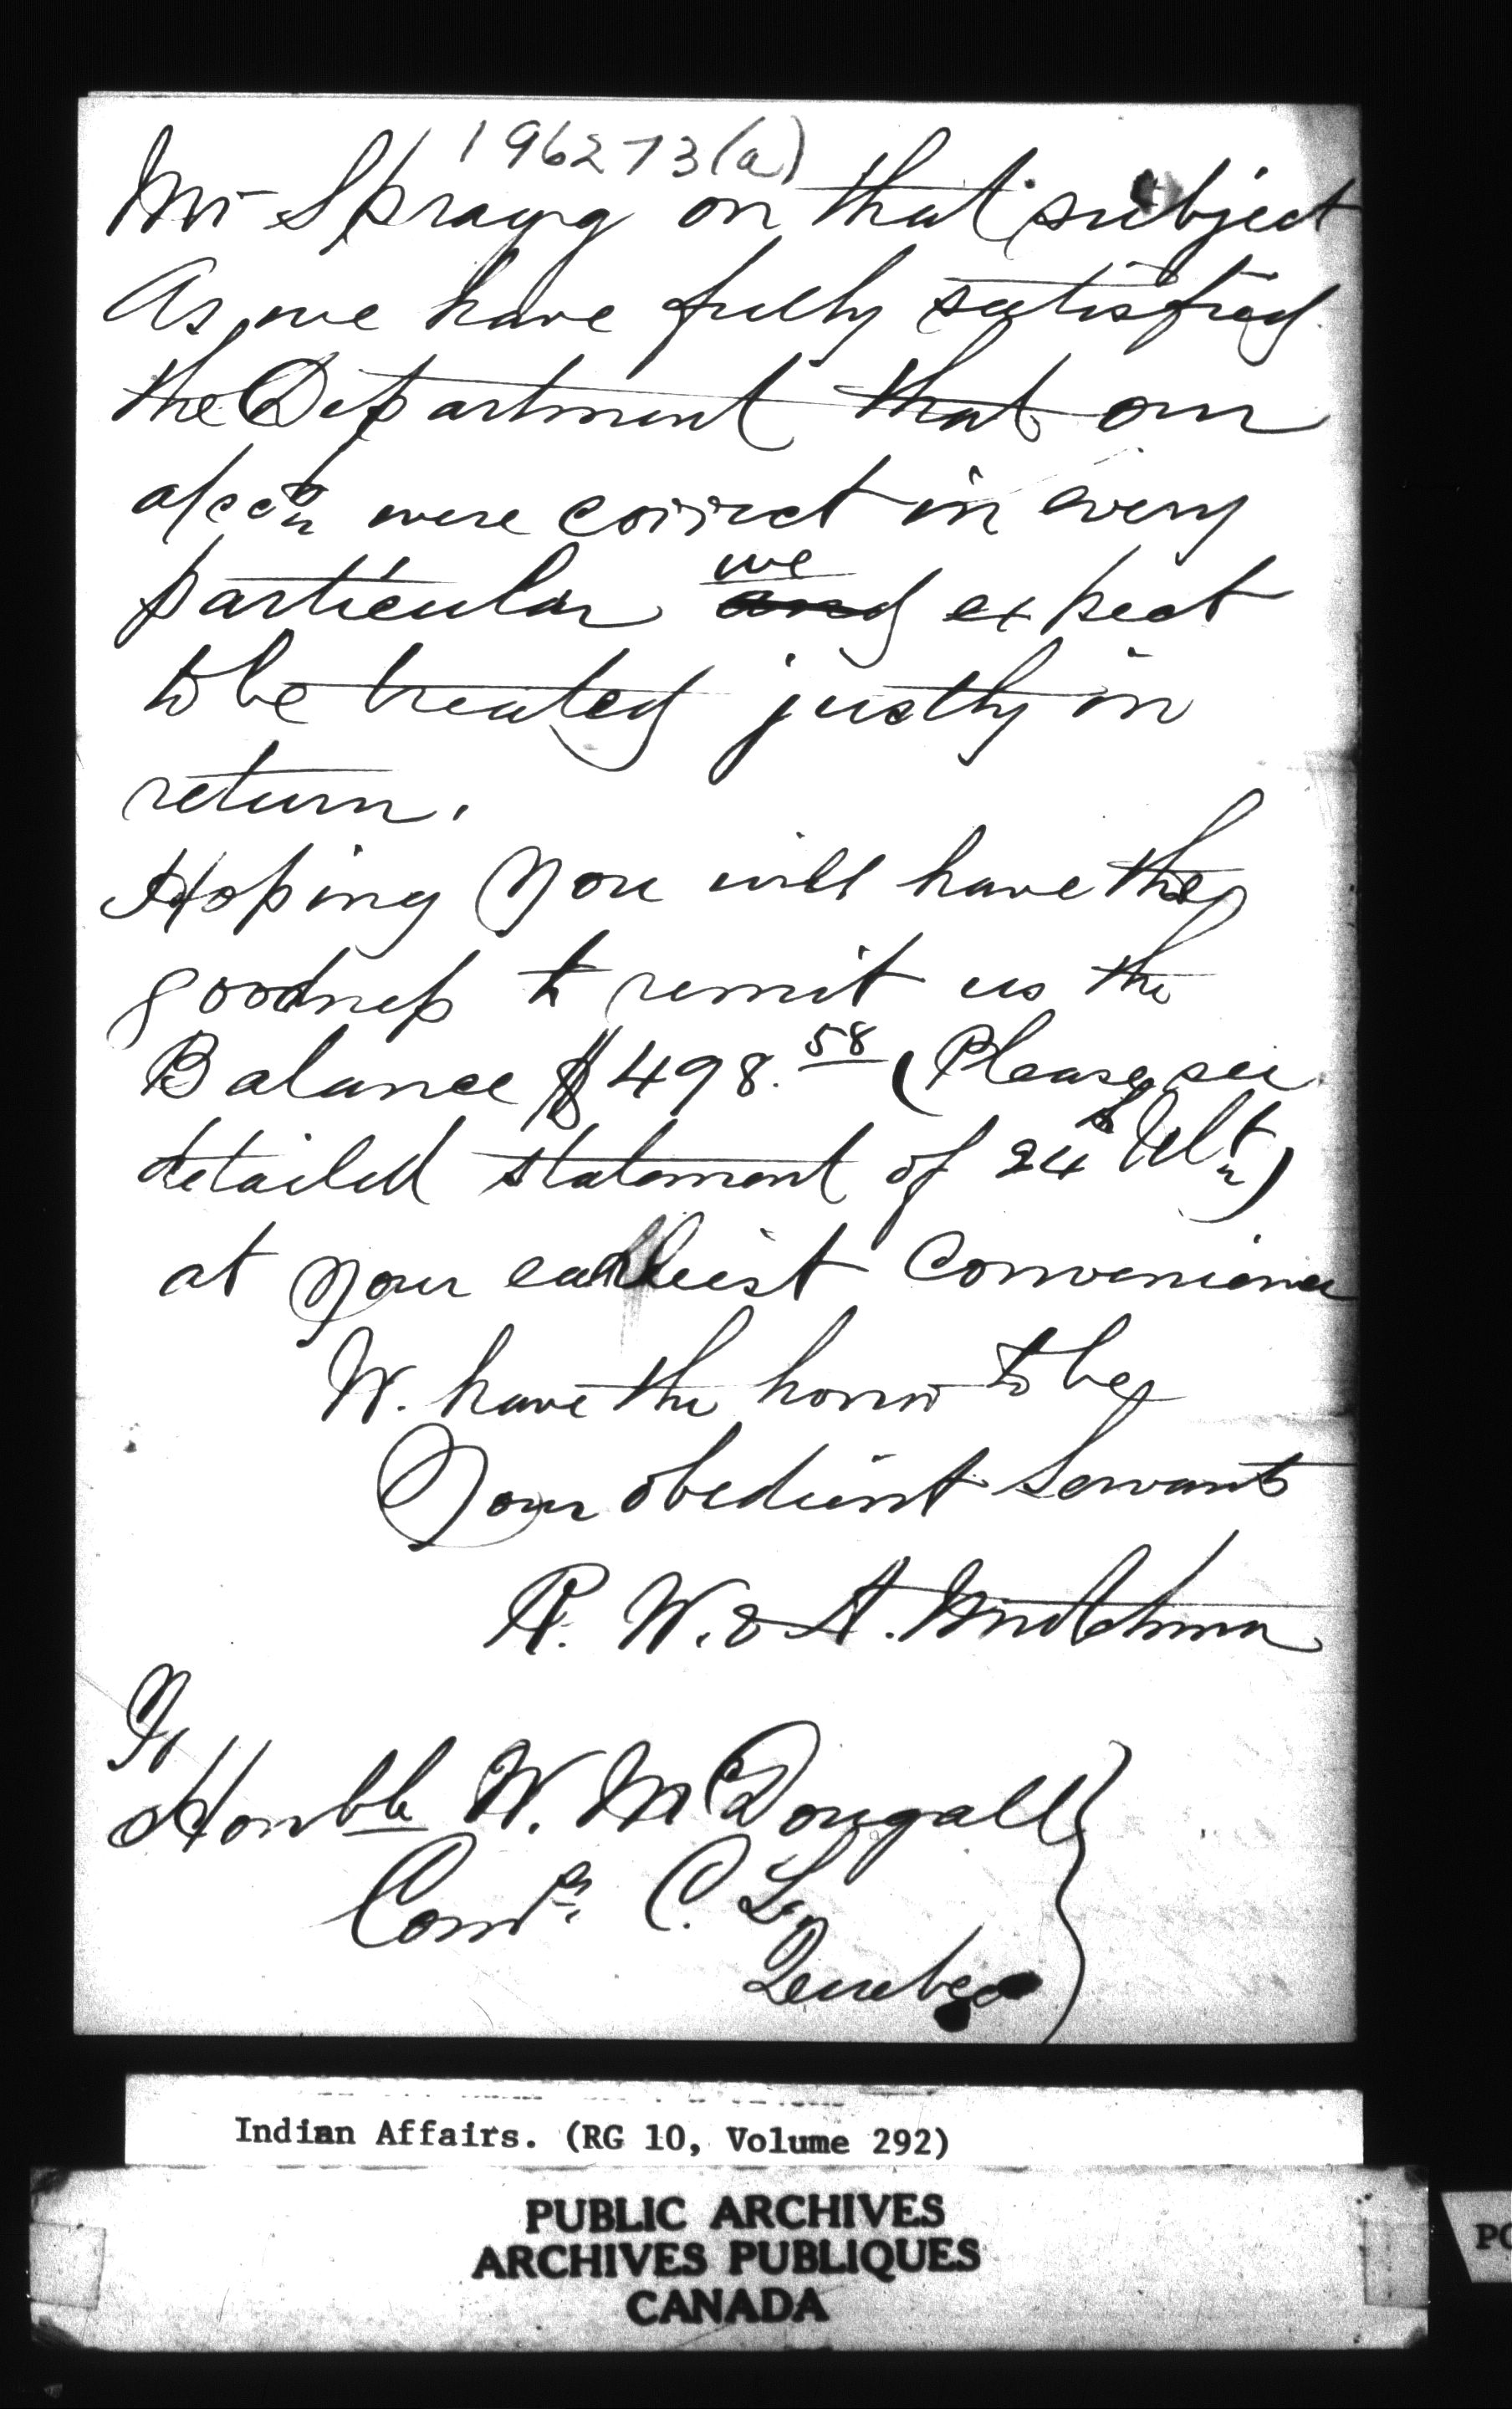 196273(a)
Mr Spragg on that subject
As we have fully satisfied
the Department that our
a/cts were correct in every
particular we and expect
to be treated justly in
return.
Hoping you will have the
goodness to remit us the
Balance $498.58 (Please see
detailed statement of 24th Ult)
at your earliest convenience
W. have the honor to be
Your obedient Servants
R. W. & A.
To
Honble W. McDougall
Comr C. L.
Quebec
Indian Affairs. (RG 10, Volume 292)
PUBLIC ARCHIVES
ARCHIVES PUBLIQUES
CANADA